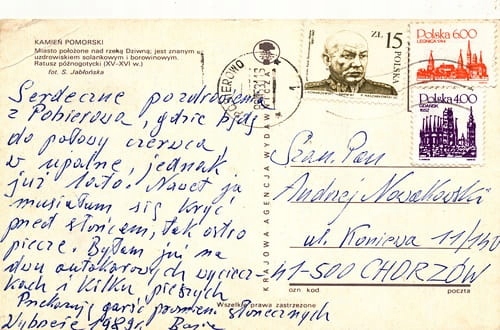 KAMIEŃ POMORSKI
Miasto położone nad rzeką Dziwną; jest znanym
uzdrowiskiem solankowym i borowinowym.
Ratusz późnogotycki (XV-XVI w.)
fot. S. Jabłońska
Serdeczne pozdrowienia
z Pobierowa, gdzie będę
do połowy czerwca,
w upalne, jednak
już lato. Nawet ja
musiałam się kryć
przed słońcem, tak ostro
piecze. Byłam już na
dwu autokarowych wyciecz-
kach i kilku pieszych
Przekazuję garść promieni słonecznych
Wybrzeże 1989r. Basia
KRAJOWA AGENCJA WYDAW
Wszelkie prawa zastrzeżone
POBIEROWO
1
ZŁ 15
POLSKA
Polska 6.00
LEGNICA 1744
Polska 4.00
GDAŃSK
1652
Szan. Pan
Andrzej Nowakowski
ul. Koniewa 11/140
41-500 CHORZÓW
ozn kod
poczta